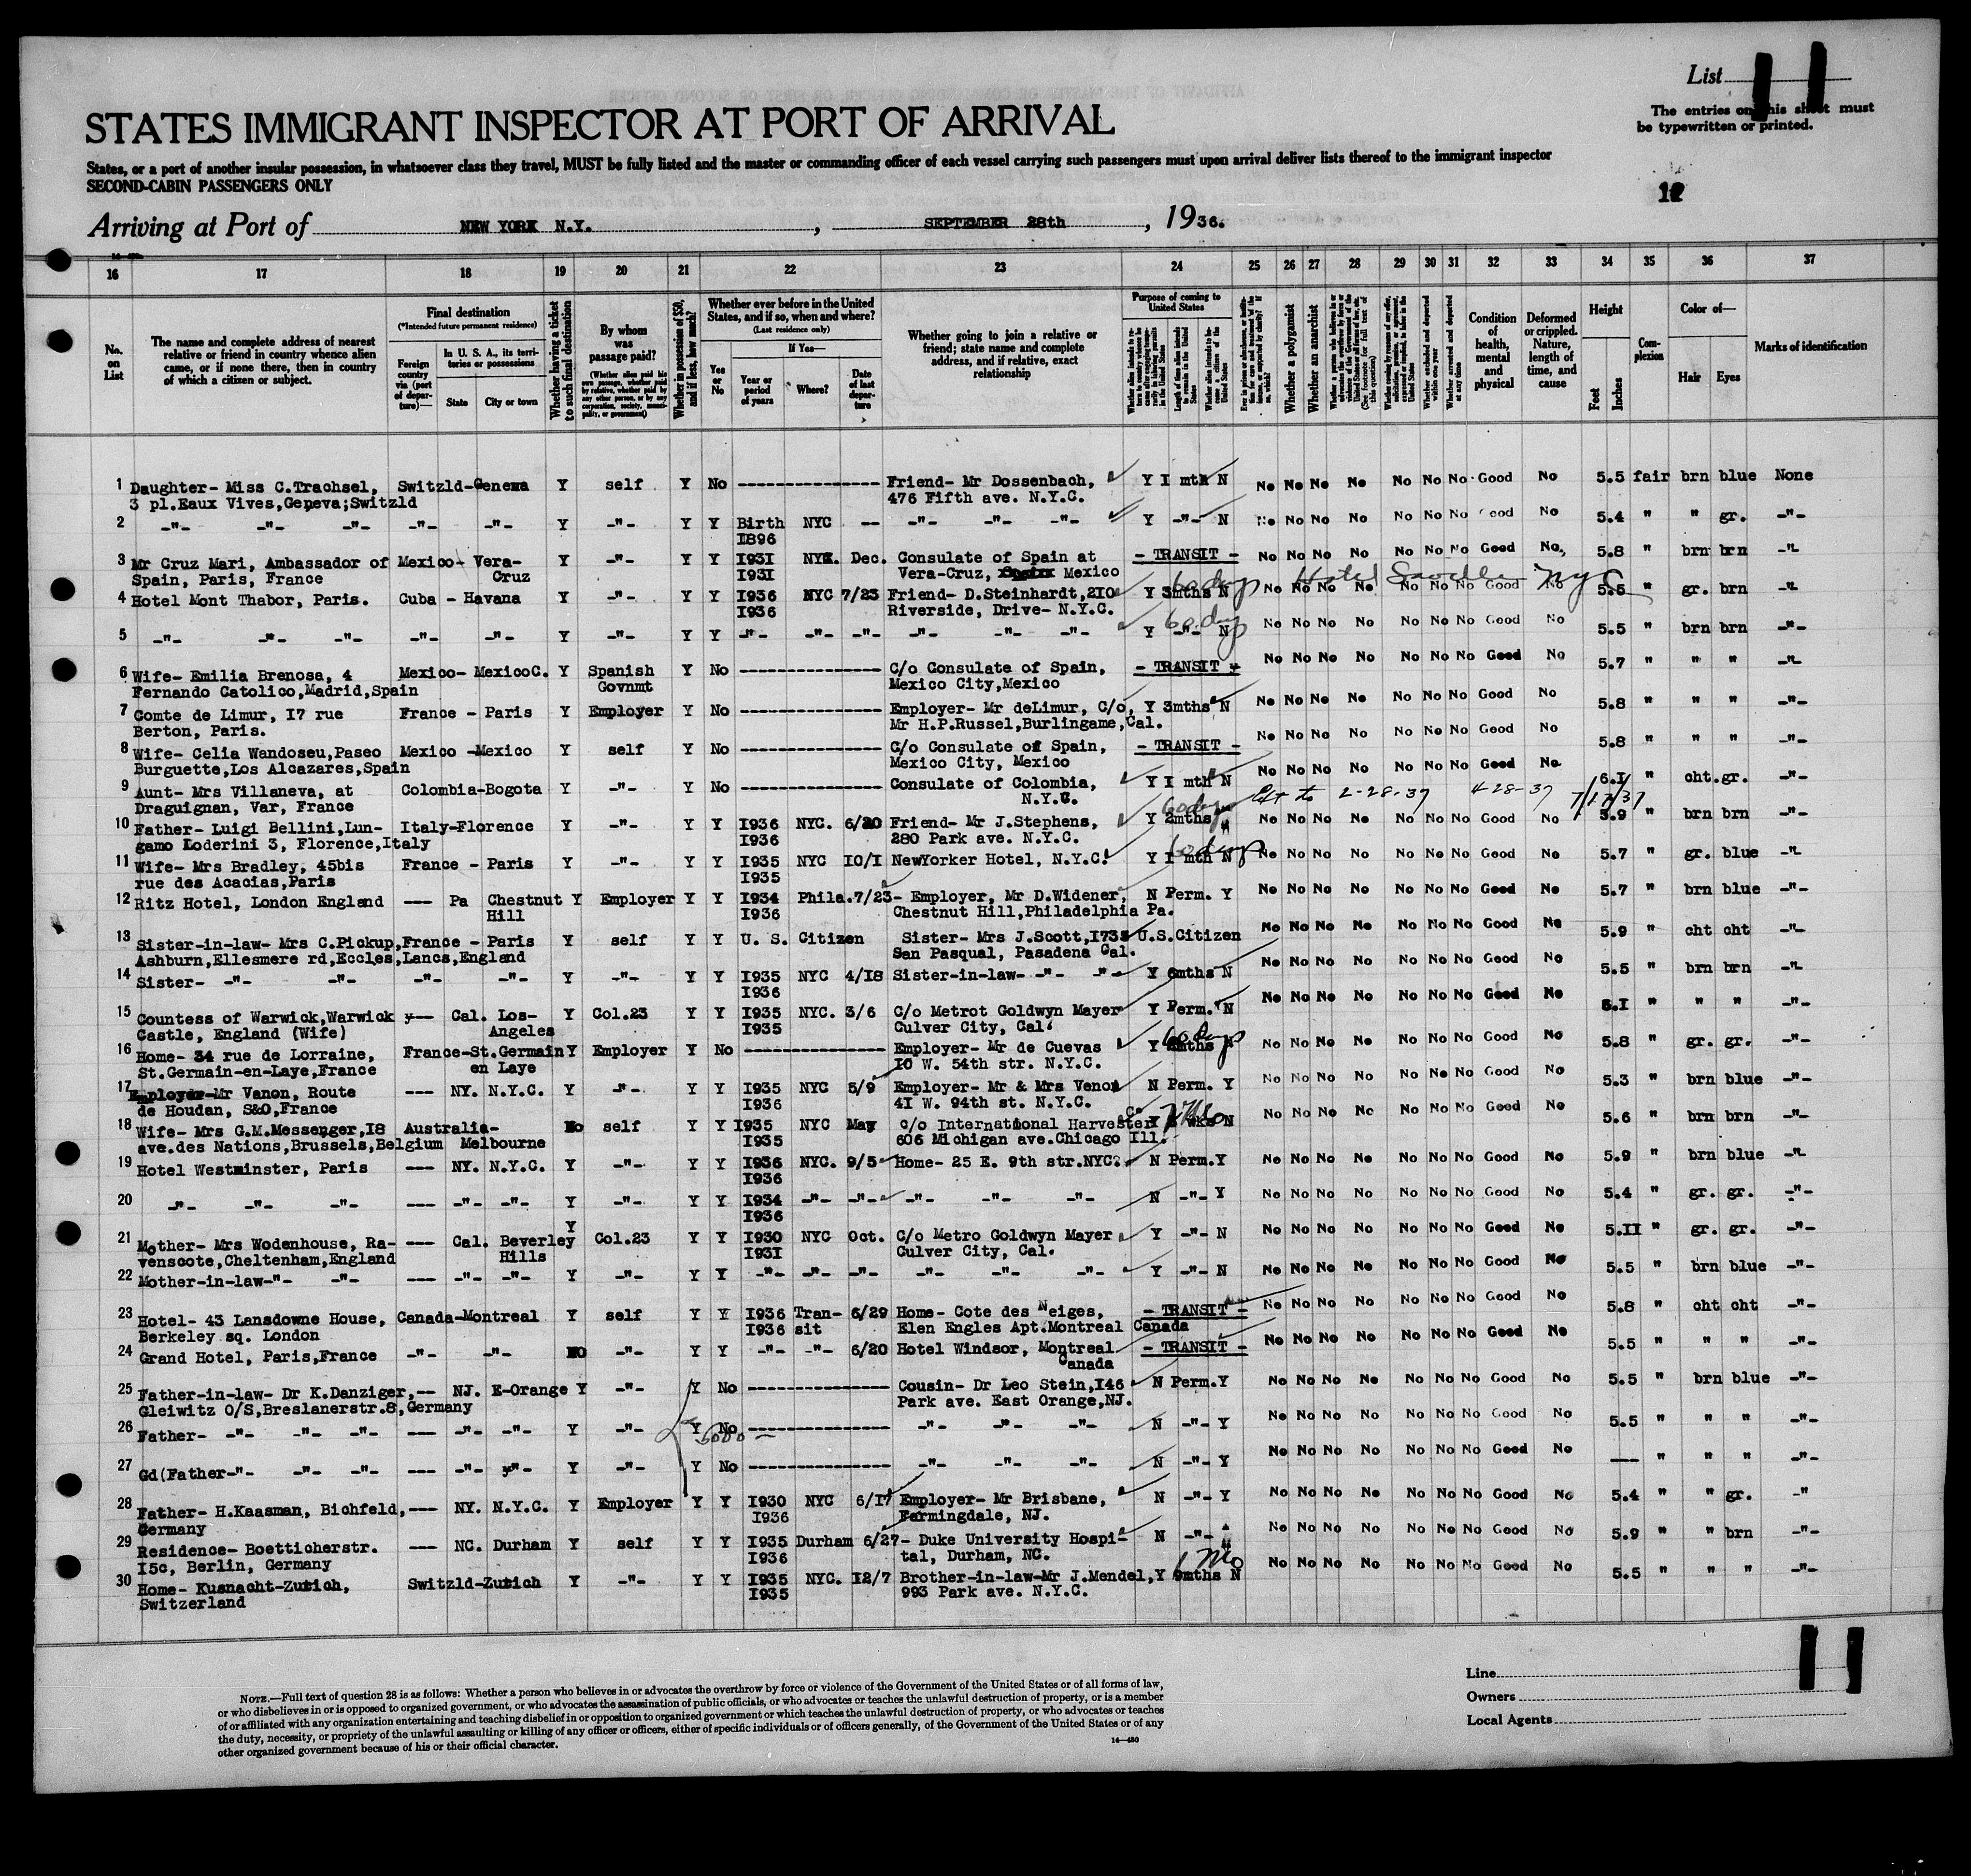 List 11
The entries on this sheet must
be typewritten or printed.
STATES IMMIGRANT INSPECTOR AT PORT OF ARRIVAL
States, or a port of another insular possession, in whatsoever class they travel, MUST be fully listed and the master or commanding officer of each vessel carrying such passengers must upon arrival deliver lists thereof to the immigrant inspector
SECOND-CABIN PASSENGERS ONLY
Arriving at Port of NEW YORK N.Y., SEPTEMBER 28th, 1936.
16 17 18 19 20 21 22 23 24 25 26 27 28 29 30 31 32 33 34 35 36 37
No. on List
The name and complete address of nearest relative or friend in country whence alien came, or if none there, then in country of which a citizen or subject.
Final destination
(*Intended future permanent residence)
Foreign country via (port of departure)—
In U. S. A., its territories or possessions
State City or town
Whether having a ticket to such final destination
By whom was passage paid?
(Whether alien paid his own passage, whether paid by relative, whether paid by any other person, or by any corporation, society, municipality, or government)
Whether in possession of $50, and if less, how much?
Whether ever before in the United States, and if so, when and where?
(Last residence only)
Yes or No
If Yes—
Year or period of years Where? Date of last departure
Whether going to join a relative or friend; state name and complete address, and if relative, exact relationship
Purpose of coming to United States
Whether a polygamist
Whether an anarchist
Condition of health, mental and physical
Deformed or crippled. Nature, length of time, and cause
Height
Feet Inches
Complexion
Color of—
Hair Eyes
Marks of identification
1 Daughter- Miss C.Trachsel, Switzld-Geneva Y self Y No --- Friend- Mr Dossenbach, Y I mth N No No No No No No No Good No 5.5 fair brn blue None
3 pl.Eaux Vives,Geneva;Switzld 476 Fifth ave. N.Y.C.
2 -"- -"- -"- -"- -"- Y -"- Y Y Birth NYC -- -"- -"- -"- Y -"- N No No No No No No No Good No 5.4 " " gr. -"-
I896
3 Mr Cruz Mari, Ambassador of Mexico- Vera- Y -"- Y Y I93I NYC. Dec. Consulate of Spain at - TRANSIT - No No No No No No No Good No 5.8 " brn brn -"-
Spain, Paris, France Cruz I93I Vera-Cruz, Mexico
60 days Hotel Savilla NYC
4 Hotel Mont Thabor, Paris. Cuba - Havana Y -"- Y Y I936 NYC 7/23 Friend- D.Steinhardt,2I0 Y 3mths N No No No No No No No Good No 5.5 " gr. brn -"-
I936 Riverside, Drive- N.Y.C.
60 days
5 -"- -"- -"- -"- -"- Y -"- Y Y -"- -"- -"- -"- -"- -"- Y -"- N No No No No No No No Good No 5.5 " brn brn -"-
6 Wife- Emilia Brenosa, 4 Mexico- MexicoC. Y Spanish Y No --- C/o Consulate of Spain, - TRANSIT - No No No No No No No Good No 5.7 " " " -"-
Fernando Catolico,Madrid,Spain Govnmt Mexico City,Mexico
7 Comte de Limur, I7 rue France - Paris Y Employer Y No --- Employer- Mr deLimur, C/o, Y 3mths N No No No No No No No Good No 5.8 " " " -"-
Berton, Paris. Mr H.P.Russel,Burlingame,Cal.
8 Wife- Celia Wandoseu,Paseo Mexico -Mexico Y self Y No --- C/o Consulate of Spain, - TRANSIT - No No No No No No No Good No 5.8 " " " -"-
Burguette,Los Alcazares,Spain Mexico City, Mexico
9 Aunt- Mrs Villaneva, at Colombia-Bogota Y -"- Y No --- Consulate of Colombia, Y I mth N No No No No No No No Good No 6.I " cht. gr. -"-
Draguignan, Var, France N.Y.C.
60 days Ext to 2-28-37 4-28-37 7/17/37
10 Father- Luigi Bellini,Lun- Italy-Florence Y -"- Y Y I936 NYC. 6/20 Friend- Mr J.Stephens, Y 2mths " No No No No No No No Good No 5.9 " brn brn -"-
gamo Loderini 3, Florence,Italy I936 280 Park ave. N.Y.C.
60 days
11 Wife- Mrs Bradley, 45bis France - Paris Y -"- Y Y I935 NYC IO/I NewYorker Hotel, N.Y.C. Y I mth N No No No No No No No Good No 5.7 " gr. blue -"-
rue des Acacias,Paris I935
12 Ritz Hotel, London England --- Pa Chestnut Y Employer Y Y I934 Phila. 7/23- Employer, Mr D.Widener, N Perm. Y No No No No No No No Good No 5.7 " brn blue -"-
Hill I936 Chestnut Hill,Philadelphia Pa.
13 Sister-in-law- Mrs C.Pickup,France - Paris Y self Y Y U. S. Citizen Sister- Mrs J.Scott,I735 U.S.Citizen No No No No No No No Good No 5.9 " cht cht -"-
Ashburn,Ellesmere rd,Eccles,Lancs,England San Pasqual, Pasadena Cal.
14 Sister- -"- -"- -"- -"- Y -"- Y Y I935 NYC 4/I8 Sister-in-law- -"- -"- Y 6mths N No No No No No No No Good No 5.5 " brn brn -"-
I936
15 Countess of Warwick,Warwick --- Cal. Los- Y Col.23 Y Y I935 NYC. 3/6 C/o Metrot Goldwyn Mayer Y Perm. N No No No No No No No Good No 6.I " " " -"-
Castle, England (Wife) Angeles I935 Culver City, Cal.
60 days
16 Home- 34 rue de Lorraine, France-St.Germain Y Employer Y No --- Employer- Mr de Cuevas Y mths N No No No No No No No Good No 5.8 " gr. gr. -"-
St.Germain-en-Laye,France en Laye IO W. 54th str. N.Y.C.
17 Employer-Mr Vanon, Route --- NY. N.Y.C. Y -"- Y Y I935 NYC 5/9 Employer- Mr & Mrs Venon N Perm. Y No No No No No No No Good No 5.3 " brn blue -"-
de Houdan, S&O,France I936 4I W. 94th st. N.Y.C.
18 Wife- Mrs G.M.Messenger,I8 Australia- No self Y Y I935 NYC May c/o International Harvester Co Y wks N No No No No No No No Good No 5.6 " brn brn -"-
ave.des Nations,Brussels,Belgium Melbourne I935 606 Michigan ave.Chicago Ill.
19 Hotel Westminster, Paris --- NY. N.Y.C. Y -"- Y Y I936 NYC. 9/5 Home- 25 E. 9th str.NYC. N Perm. Y No No No No No No No Good No 5.9 " brn blue -"-
I936
20 -"- -"- -"- --- -"- -"- Y -"- Y Y I934 -"- -"- -"- -"- -"- N -"- Y No No No No No No No Good No 5.4 " gr. gr. -"-
I936
21 Mother- Mrs Wodenhouse, Ra- --- Cal. Beverley Y Col.23 Y Y I930 NYC Oct. C/o Metro Goldwyn Mayer Y -"- N No No No No No No No Good No 5.II " gr. gr. -"-
venscote,Cheltenham,England Hills I93I Culver City, Cal.
22 Mother-in-law-"- -"- --- -"- -"- Y -"- Y Y -"- -"- -"- -"- -"- -"- Y -"- N No No No No No No No Good No 5.5 " brn blue -"-
23 Hotel- 43 Lansdowne House, Canada-Montreal Y self Y Y I936 Tran- 6/29 Home- Cote des Neiges, - TRANSIT - No No No No No No No Good No 5.8 " cht cht -"-
Berkeley sq. London I936 sit Elen Engles Apt.Montreal Canada
24 Grand Hotel, Paris,France -"- -"- NO -"- Y Y -"- -"- 6/20 Hotel Windsor, Montreal - TRANSIT - No No No No No No No Good No 5.5 " " " -"-
Canada
25 Father-in-law- Dr K.Danziger, -- NJ. E-Orange Y -"- Y No --- Cousin- Dr Leo Stein,I46 N Perm. Y No No No No No No No Good No 5.5 " brn blue -"-
Gleiwitz O/S,Breslanerstr.8,Germany Park ave. East Orange,NJ.
26 Father- -"- -"- -"- --- -"- -"- Y -"- Y No --- -"- -"- -"- N -"- Y No No No No No No No Good No 5.5 " " " -"-
5000 —
27 Gd(Father-"- -"- -"- --- -"- -"- Y -"- Y No --- -"- -"- -"- N -"- Y No No No No No No No Good No --- " " " -"-
28 Father- H.Kaasman, Bichfeld, --- NY. N.Y.C. Y Employer Y Y I930 NYC 6/I7 Employer- Mr Brisbane, N -"- Y No No No No No No No Good No 5.4 " " gr. -"
Germany I936 Farmingdale, NJ.
29 Residence- Boetticherstr. --- NC. Durham Y self Y Y I935 Durham 6/27- Duke University Hospi- N -"- No No No No No No No Good No 5.9 " " brn -"-
I5c, Berlin, Germany I936 tal, Durham, NC.
1 mo
30 Home- Kusnacht-Zurich, Switzld-Zurich Y -"- Y Y I935 NYC. I2/7 Brother-in-law-Mr J.Mendel, Y mths N No No No No No No No Good No 5.5 " " " -"-
Switzerland I935 993 Park ave. N.Y.C.
NOTE.—Full text of question 28 is as follows: Whether a person who believes in or advocates the overthrow by force or violence of the Government of the United States or of all forms of law,
or who disbelieves in or is opposed to organized government, or who advocates the assassination of public officials, or who advocates or teaches the unlawful destruction of property, or is a member
of or affiliated with any organization entertaining and teaching disbelief in or opposition to organized government or which teaches the unlawful destruction of property, or who advocates or teaches
the duty, necessity, or propriety of the unlawful assaulting or killing of any officer or officers, either of specific individuals or of officers generally, of the Government of the United States or of any
other organized government because of his or their official character.
14—480
Line
Owners
Local Agents
11